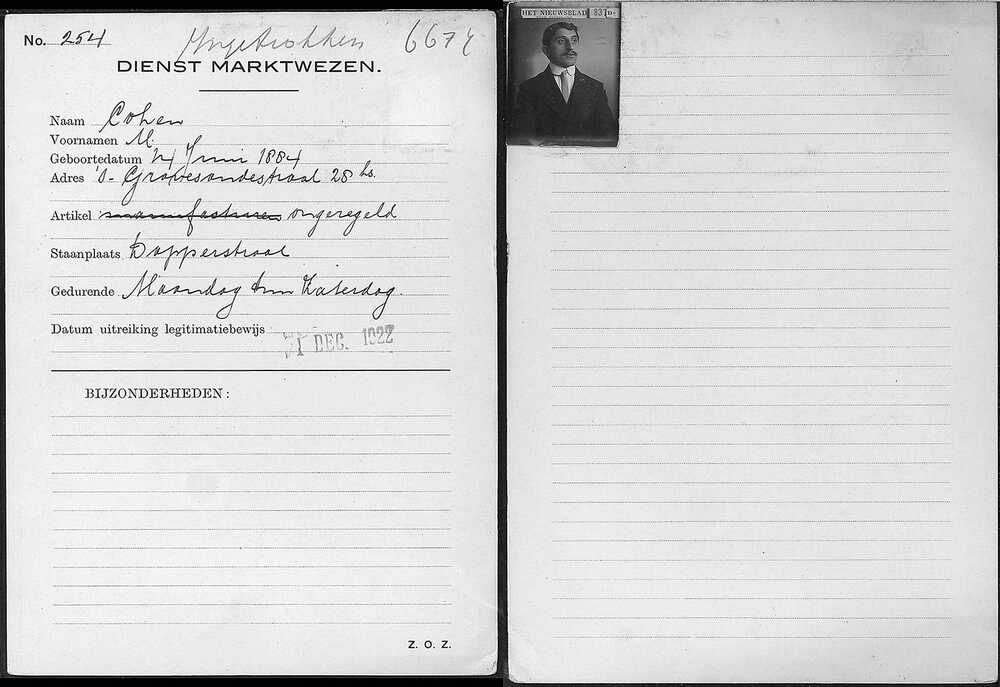 No. 254 Ingetrokken 667
DIENST MARKTWEZEN.
Naam Cohen
Voornamen M.
Geboortedatum 24 Juni 1884
Adres 's-Gravesandestraat 28 hs.
Artikel manufacturen ongeregeld
Staanplaats Dapperstraat
Gedurende Maandag t/m Zaterdag.
Datum uitreiking legitimatiebewijs
DEC. 1922
BIJZONDERHEDEN:
Z. O. Z.
HET NIEUWSBLAD 837